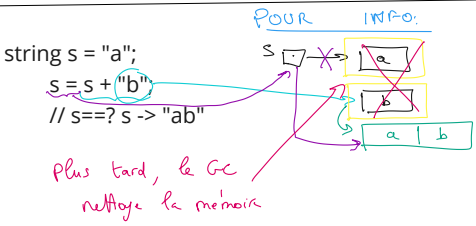 POUR INFO:
string s = "a";
s = s + "b";
// s==? s -> "ab"
S
a
b
a b
Plus tard, le GC
nettoye la mémoire